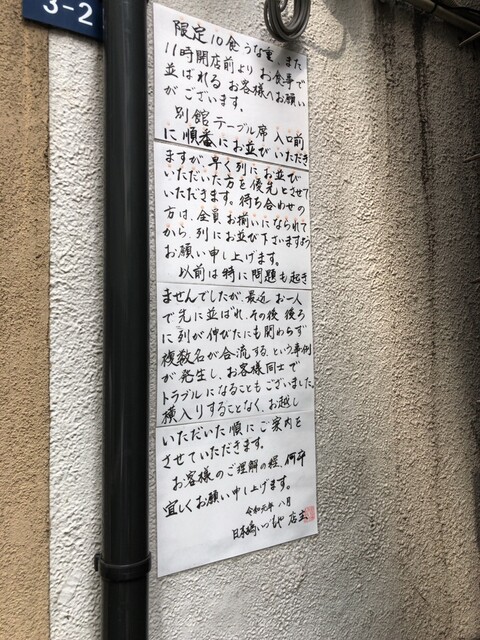 3-2
限定10食うな重、また
11時開店前よりお食事で
並ばれるお客様へお願い
がございます。
別館テーブル席入口前
に順番にお並びいただき
ますが、早く列にお並び
いただいた方を優先とさせて
いただきます。待ち合わせの
方は、全員お揃いになられて
から、列にお並び下さいますよう
お願い申し上げます。
以前は特に問題も起き
ませんでしたが、最近お一人
で先に並ばれ、その後士後ろ
に列が伸びたにも関わらず
複数名が合流する、という事例
が発生し、お客様同士で
トラブルになることもございました。
横入りすることなく、お越し
いただいた順にご案内を
させていただきます。
お客様のご理解の程、何卒
宜しくお願い申し上げます。
令和元年 八月
日本橋いづもや 店主